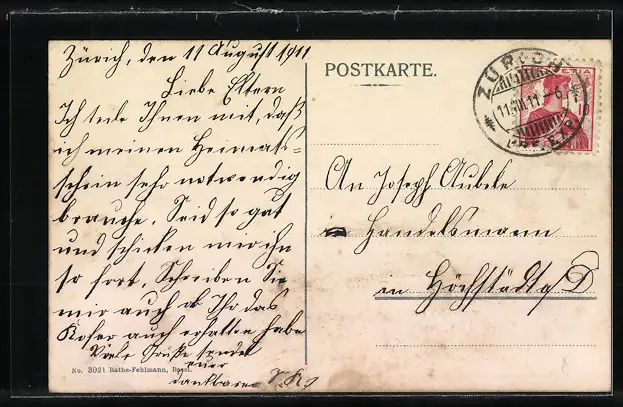 Zürich, den 11 August 1911
Liebe Eltern
Ich teile Ihnen mit, daß
ich meinen Heimats=
schein sehr notwendig
brauche. Seid so gut
und schicken mir ihn
so fort. Schreiben Sie
mir auch ob Ihr das
Kofer auch erhalten habe
Viele Grüße sendet
euer
dankbarer
No. 3021 Rathe-Fehlmann, Basel.
POSTKARTE.
ZÜRICH
11.VIII.11.-6
HELVETIA
An Joseph Aubele
Handelsmann
in Höchstädt a/D